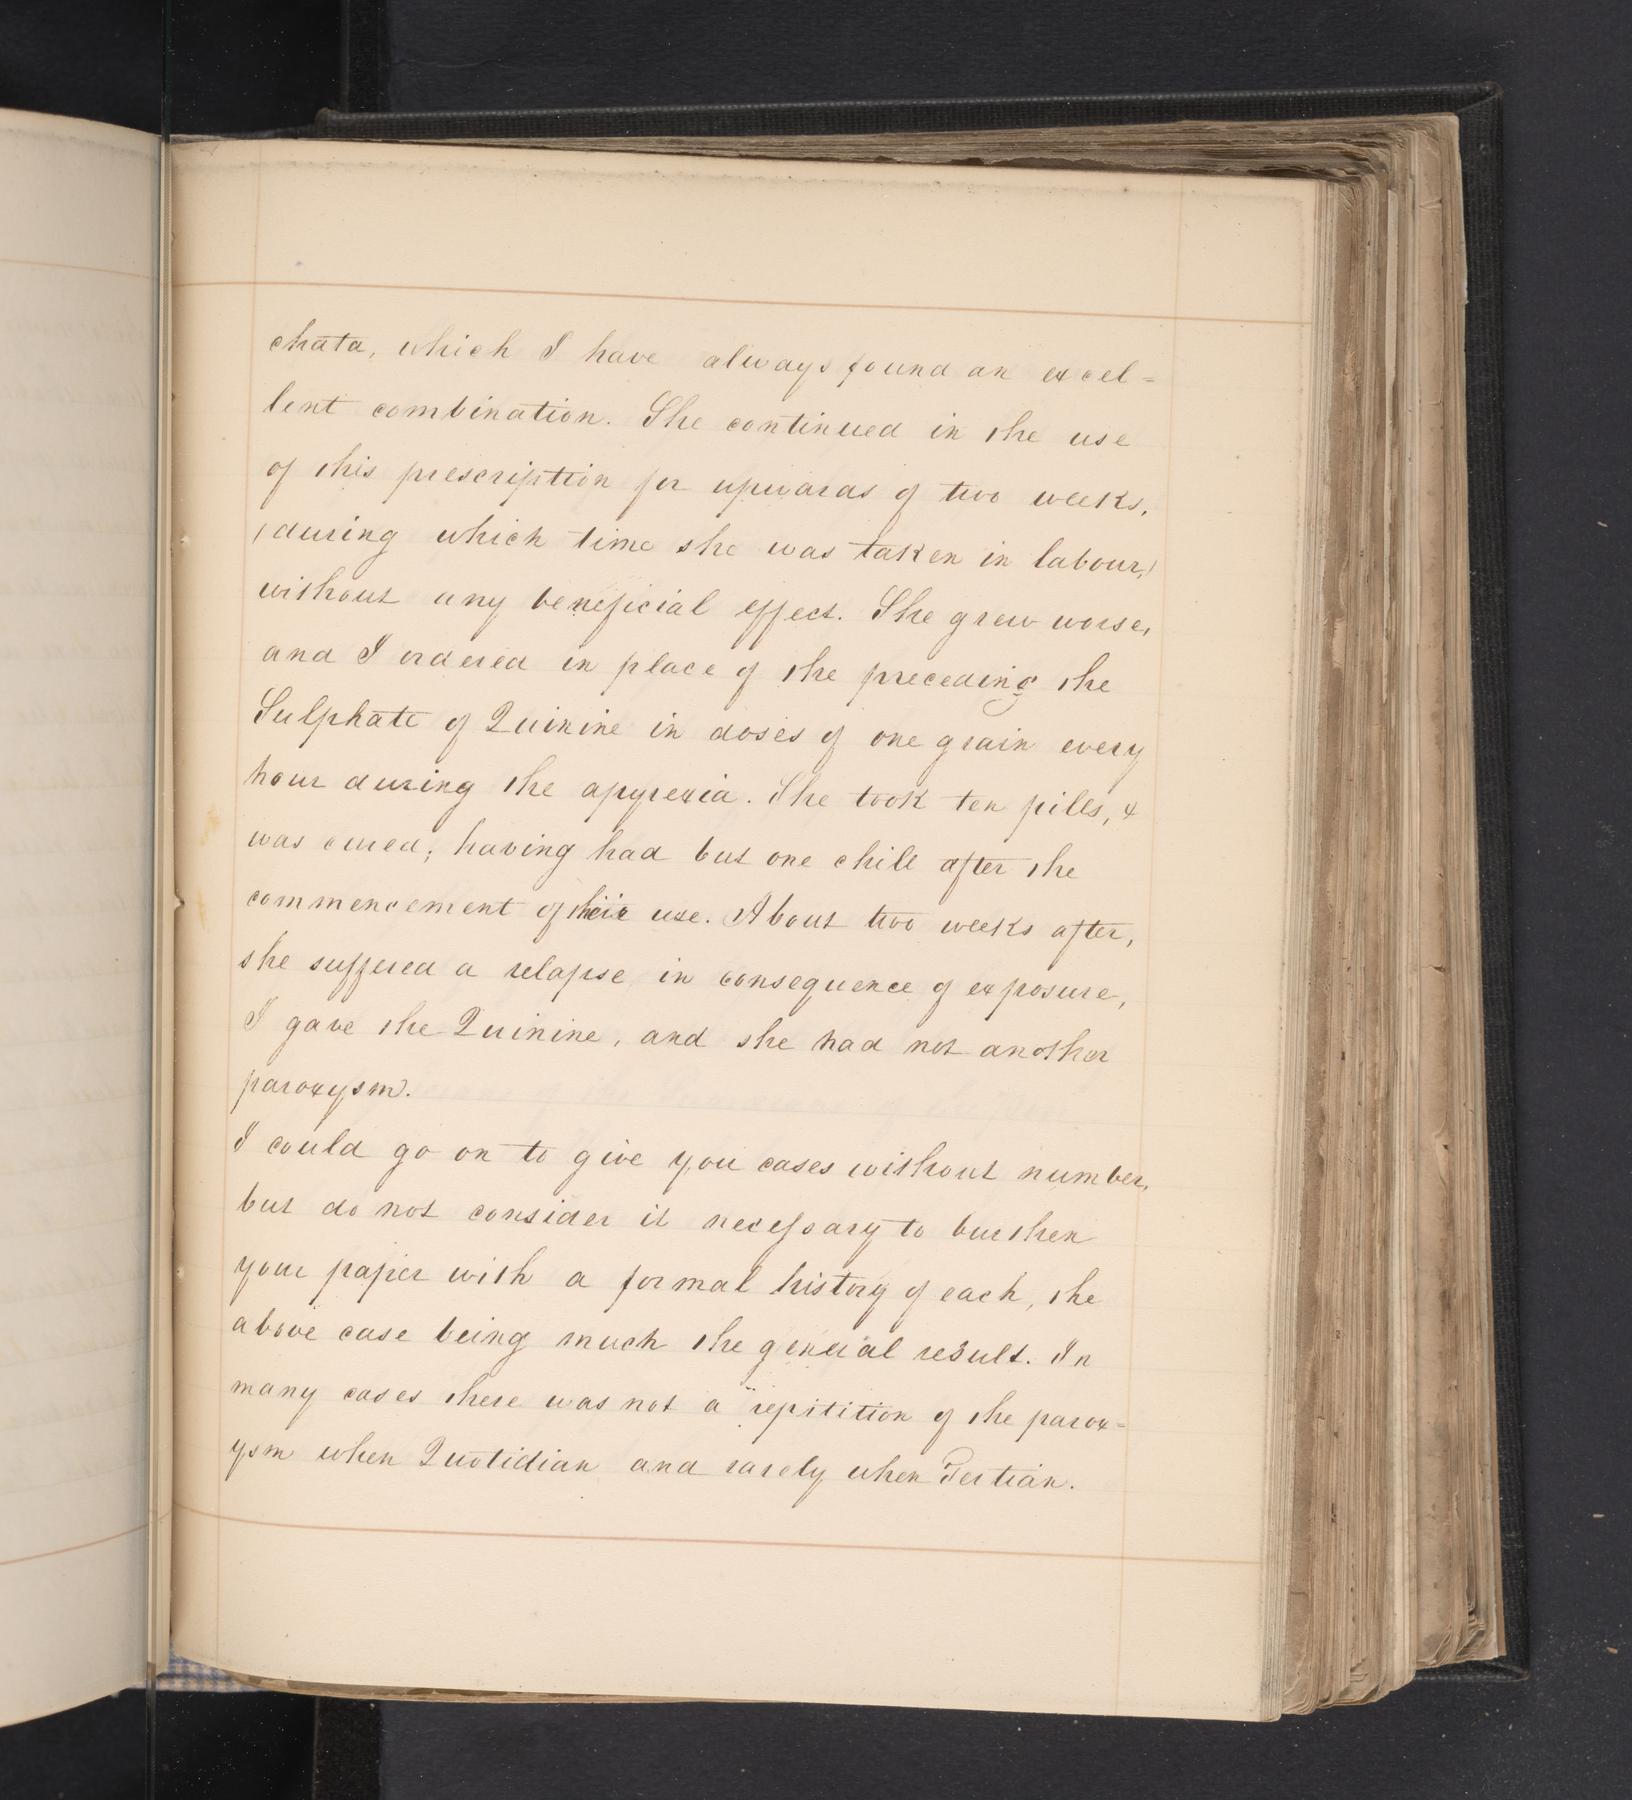 chata, which I have always found an excel=
lent combination. She continued in the use
of this prescription for upwards of two weeks,
(during which time she was taken in labour,)
without any beneficial effect. She grew worse,
and I ordered in place of the preceding the
Sulphate of Quinine in doses of one grain every
hour during the apyrexia. She took ten pills, &
was cured; having had but one chill after the
commencement of their use. About two weeks after,
she suffered a relapse in consequence of exposure,
I gave the Quinine, and she had not another
paroxysm.
I could go on to give you cases without number,
but do not consider it necessary to burthen
your paper with a formal history of each, the
above case being much the general result. In
many cases there was not a repitition of the parox=
ysm when Quotidian and rarely when Tertian.